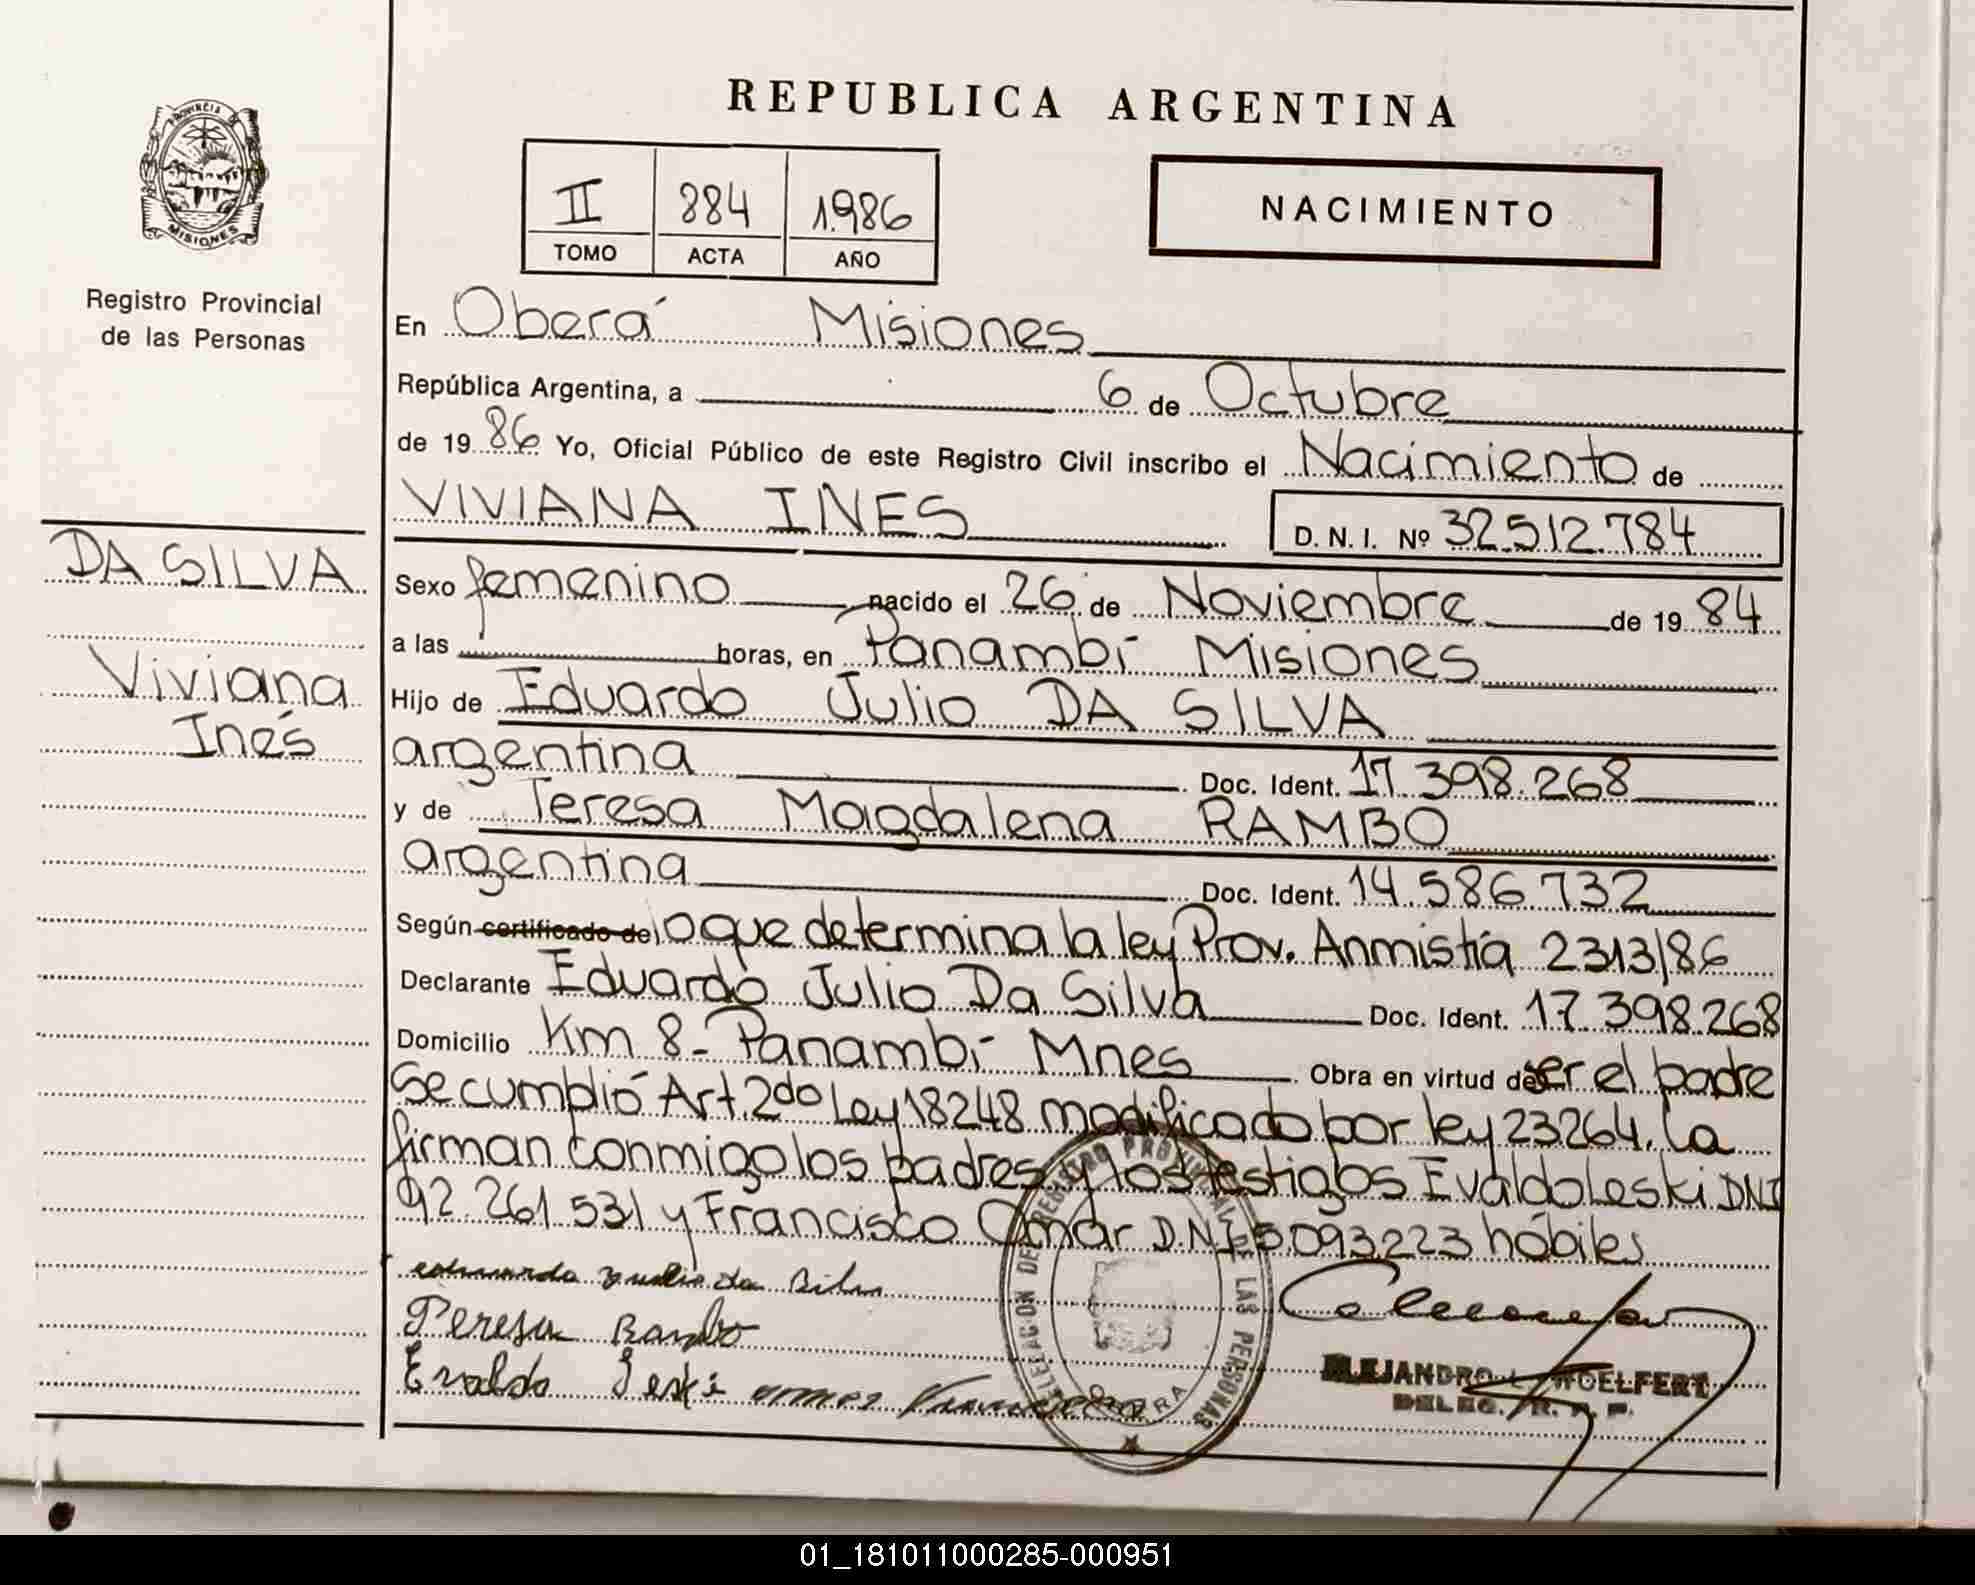 REPUBLICA ARGENTINA
PROVINCIA DE
MISIONES
Registro Provincial
de las Personas
II 884 1.986
TOMO ACTA AÑO
NACIMIENTO
En Oberá Misiones
República Argentina, a 6 de Octubre
de 19 86 Yo, Oficial Público de este Registro Civil inscribo el Nacimiento de
VIVIANA INES D. N. I. Nº 32.512.784
DA SILVA
Viviana
Inés
Sexo femenino nacido el 26 de Noviembre de 19 84
a las horas, en Panambí Misiones
Hijo de Eduardo Julio DA SILVA
argentina Doc. Ident. 17.398.268
y de Teresa Magdalena RAMBO
argentina Doc. Ident. 14.586.732
Según certificado de lo que determina la ley Prov. Anmistía 2313/86
Declarante Eduardo Julio Da Silva Doc. Ident. 17.398.268
Domicilio Km 8 - Panambí Mnes Obra en virtud de ser el padre
Se cumplió Art. 2do Ley 18248 modificado por ley 23264. La
firman conmigo los padres y los testigos Evaldo Leski DNI
92.261.531 y Francisco Omar D.N.I 5093223 hábiles
eduardo Julio da Silva
Teresa Rambo
Evaldo Leski omar Francisco
DELEGACION DEL REGISTRO PROVINCIAL DE LAS PERSONAS
OBERA
ALEJANDRO L. WOELFERT
DELEG. R. P. P.
01_181011000285-000951